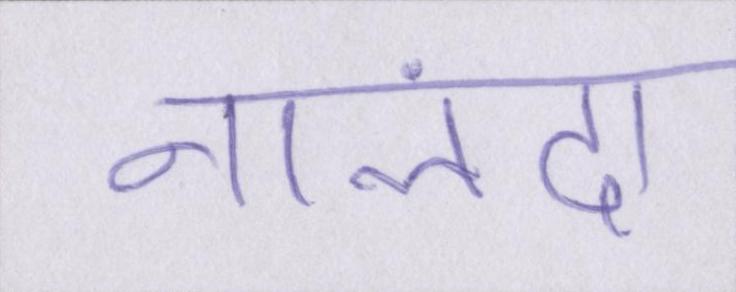 नालंदा